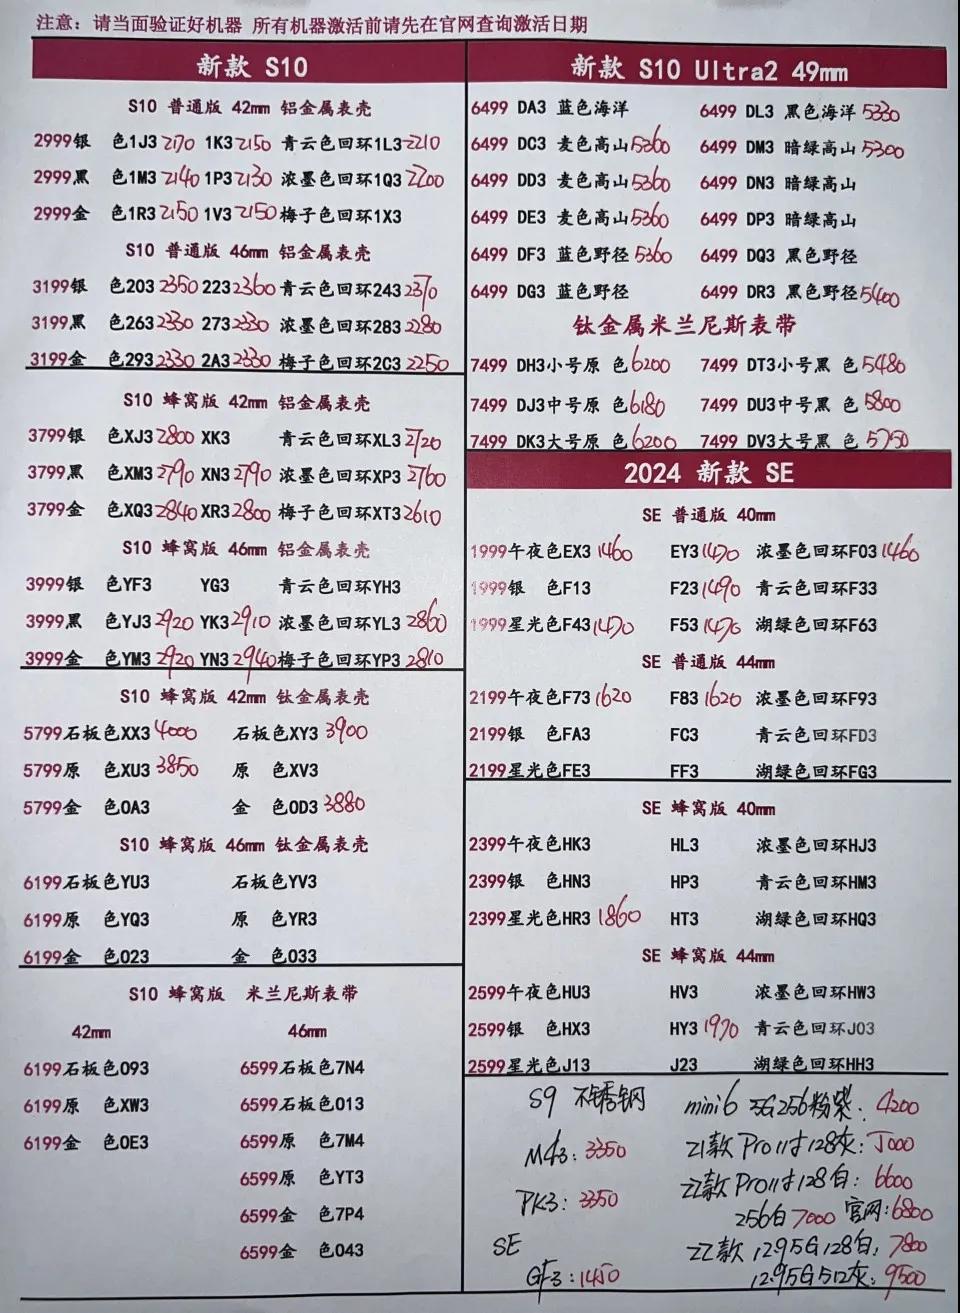 注意：请当面验证好机器 所有机器激活前请先在官网查询激活日期
新款 S10
S10 普通版 42mm 铝金属表壳
2999银 色1J3 2170 1K3 2150 青云色回环1L3 2210
2999黑 色1M3 2140 1P3 2130 浓墨色回环1Q3 2200
2999金 色1R3 2150 1V3 2150 梅子色回环1X3
S10 普通版 46mm 铝金属表壳
3199银 色203 2350 223 2360 青云色回环243 2370
3199黑 色263 2330 273 2330 浓墨色回环283 2280
3199金 色293 2330 2A3 2330 梅子色回环2C3 2250
S10 蜂窝版 42mm 铝金属表壳
3799银 色XJ3 2800 XK3 青云色回环XL3 2720
3799黑 色XM3 2790 XN3 2790 浓墨色回环XP3 2760
3799金 色XQ3 2840 XR3 2800 梅子色回环XT3 2610
S10 蜂窝版 46mm 铝金属表壳
3999银 色YF3 YG3 青云色回环YH3
3999黑 色YJ3 2920 YK3 2910 浓墨色回环YL3 2860
3999金 色YM3 2920 YN3 2940 梅子色回环YP3 2810
S10 蜂窝版 42mm 钛金属表壳
5799石板色XX3 4000 石板色XY3 3900
5799原 色XU3 3850 原 色XV3
5799金 色0A3 金 色0D3 3880
S10 蜂窝版 46mm 钛金属表壳
6199石板色YU3 石板色YV3
6199原 色YQ3 原 色YR3
6199金 色023 金 色033
S10 蜂窝版 米兰尼斯表带
42mm 46mm
6199石板色093 6599石板色7N4
6199原 色XW3 6599石板色013
6199金 色0E3 6599原 色7M4
6599原 色YT3
6599金 色7P4
6599金 色043
新款 S10 Ultra2 49mm
6499 DA3 蓝色海洋 6499 DL3 黑色海洋 5330
6499 DC3 麦色高山 5360 6499 DM3 暗绿高山 5300
6499 DD3 麦色高山 5360 6499 DN3 暗绿高山
6499 DE3 麦色高山 5360 6499 DP3 暗绿高山
6499 DF3 蓝色野径 5360 6499 DQ3 黑色野径
6499 DG3 蓝色野径 6499 DR3 黑色野径 5400
钛金属米兰尼斯表带
7499 DH3小号原 色 6200 7499 DT3小号黑 色 5480
7499 DJ3中号原 色 6180 7499 DU3中号黑 色 5800
7499 DK3大号原 色 6200 7499 DV3大号黑 色 5750
2024 新款 SE
SE 普通版 40mm
1999午夜色EX3 1460 EY3 1470 浓墨色回环F03 1460
1999银 色F13 F23 1490 青云色回环F33
1999星光色F43 1470 F53 1470 湖绿色回环F63
SE 普通版 44mm
2199午夜色F73 1620 F83 1620 浓墨色回环F93
2199银 色FA3 FC3 青云色回环FD3
2199星光色FE3 FF3 湖绿色回环FG3
SE 蜂窝版 40mm
2399午夜色HK3 HL3 浓墨色回环HJ3
2399银 色HN3 HP3 青云色回环HM3
2399星光色HR3 1860 HT3 湖绿色回环HQ3
SE 蜂窝版 44mm
2599午夜色HU3 HV3 浓墨色回环HW3
2599银 色HX3 HY3 1970 青云色回环J03
2599星光色J13 J23 湖绿色回环HH3
S9 不锈钢
M43：3350
PK3：3350
SE
GF3：1450
mini6 5G256粉紫：4200
21款 Pro11寸128灰：5000
22款Pro11寸128白：6600
256白7000 官网：6800
22款 12.9 5G 128白：7800
12.9 5G 512灰：9500